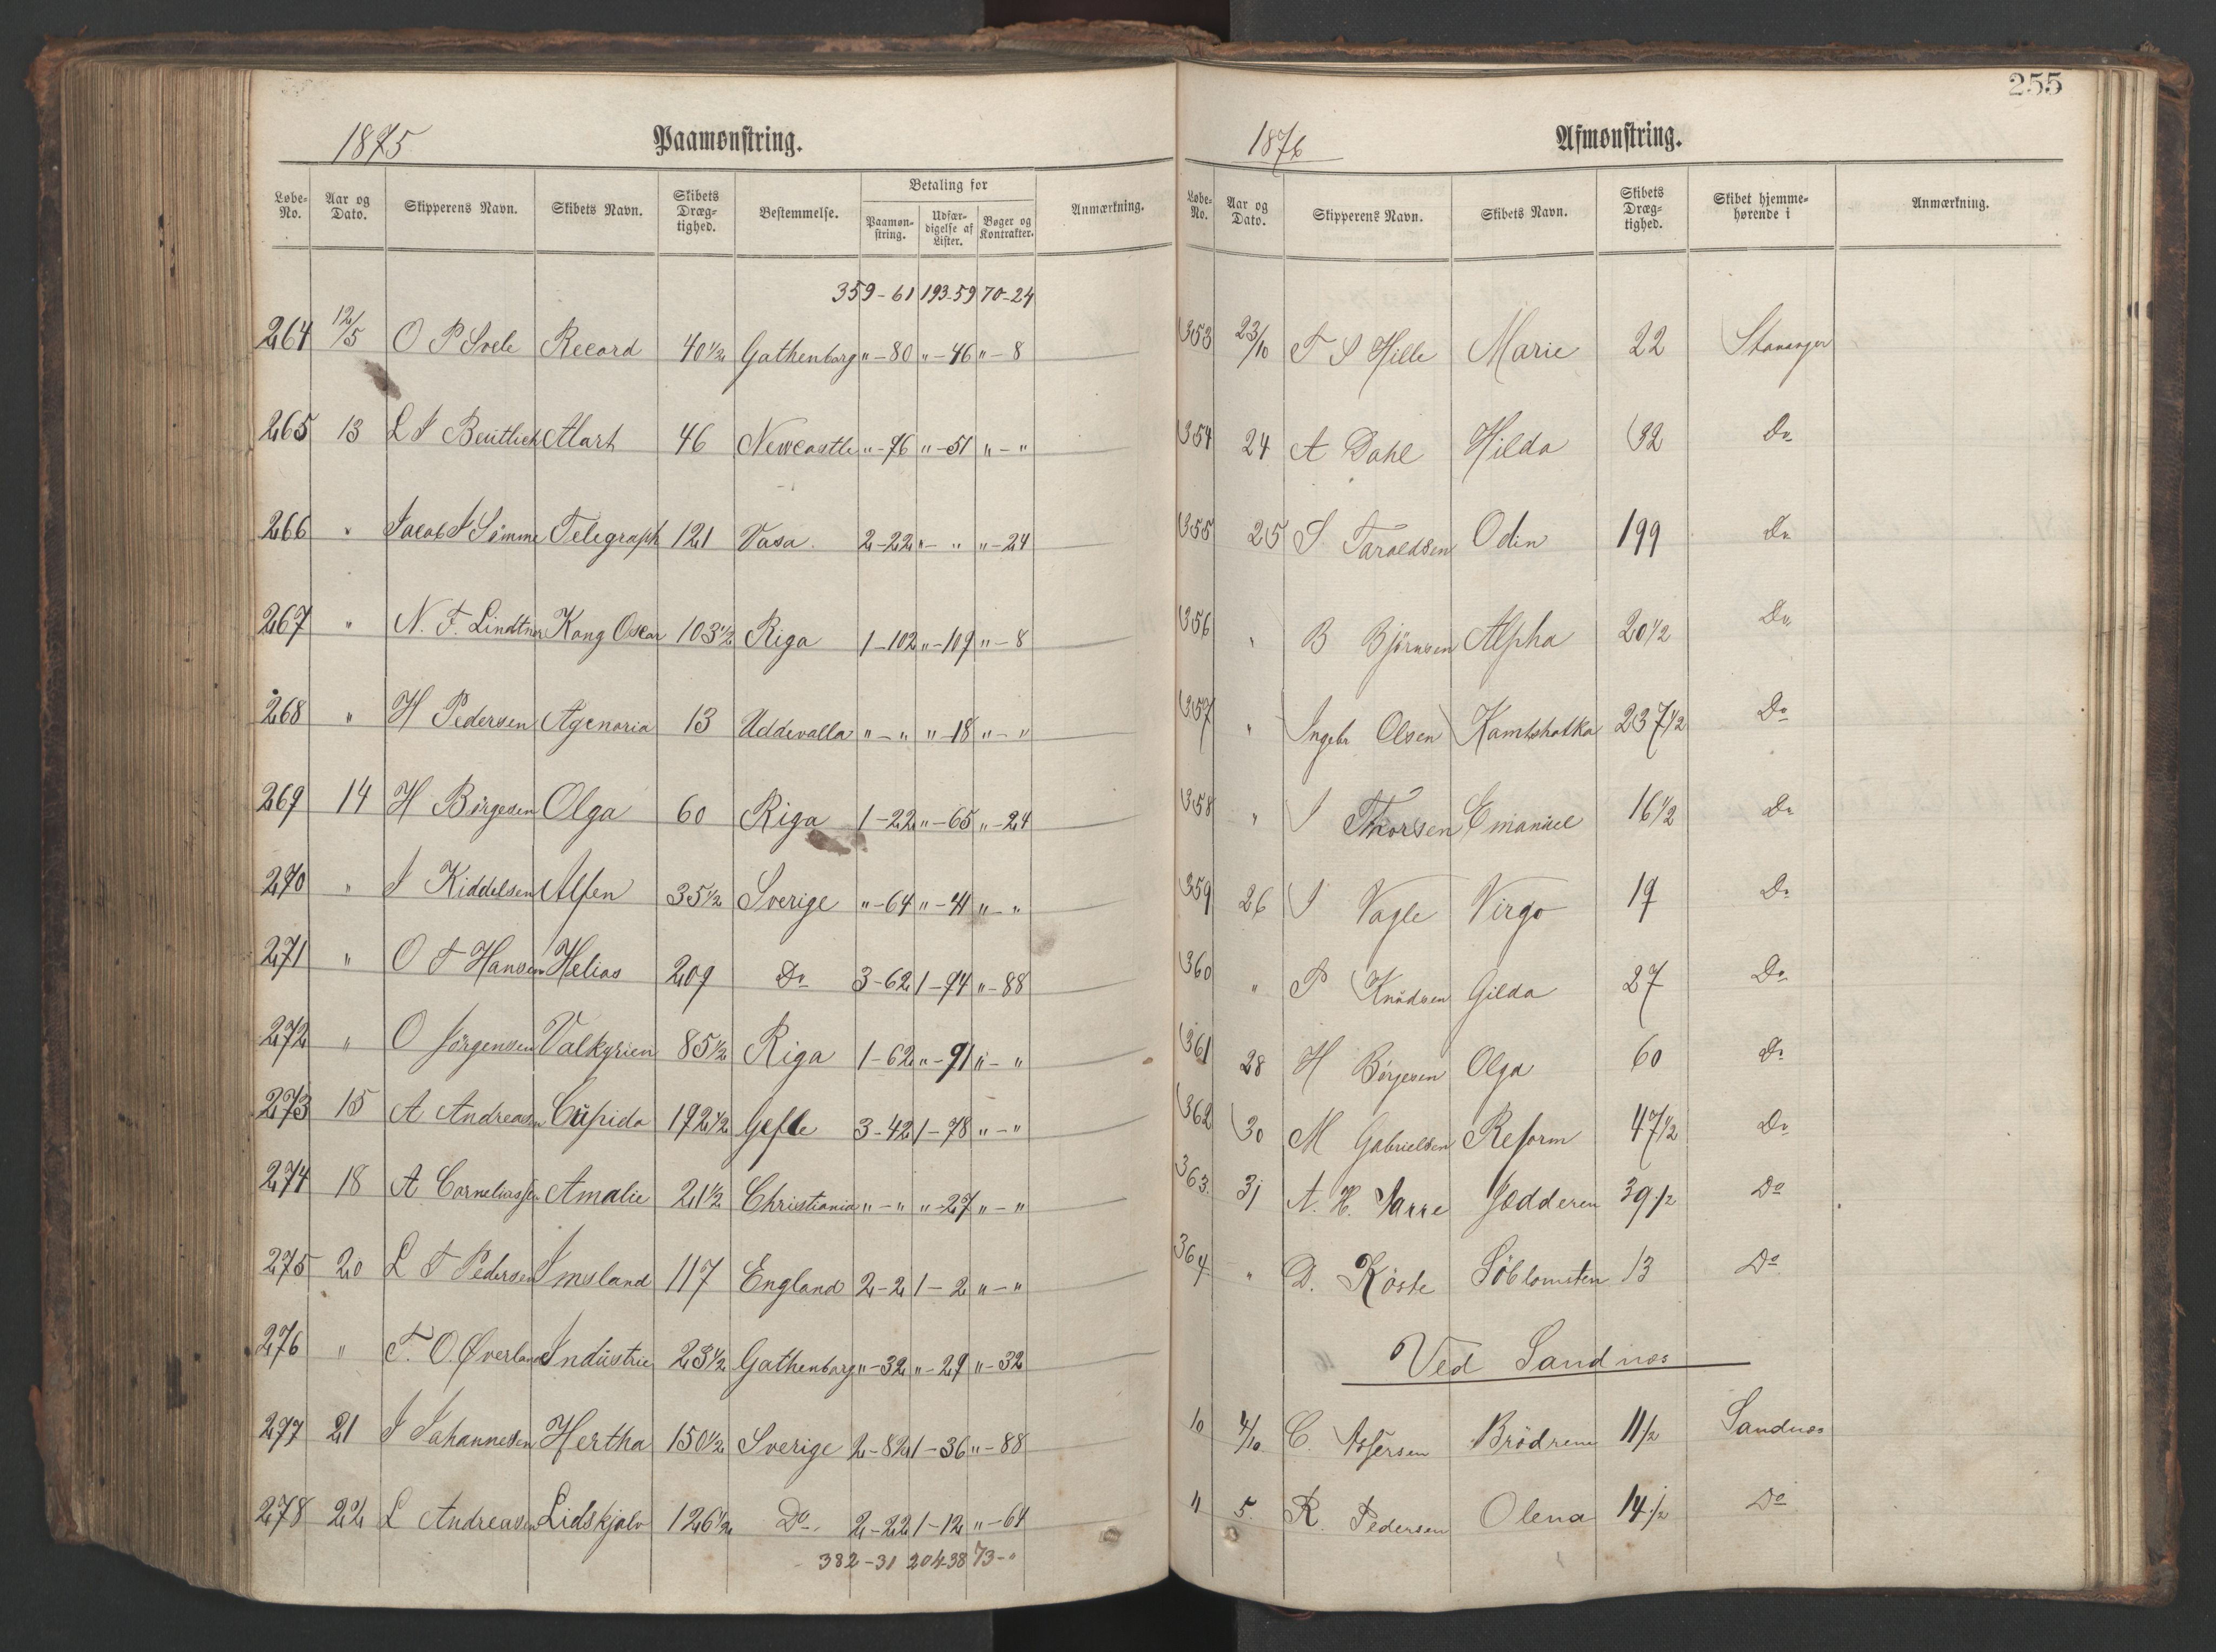 1875 Paamønstring.
Løbe-No. Aar og Dato. Skipperens Navn. Skibets Navn. Skibets Dræg-tighed. Bestemmelse. Betaling for Paamøn-string. Udfær-digelse af Lister. Bøger og Kontrakter. Anmærkning.
359-61 193-59 70-24
264 12/5 O P Svele Record 40 1/2 Gothenborg "-80 "-46 "-8
265 13 L I Beutlich Mart 46 Newcastle "-96 "-51 "-"
266 " Jacob S Sømme Telegraph 121 Vasa. 2-22 "-" "-24
267 " N. F. Lindtner Kong Oscar 103 1/2 Riga 1-102 "-109 "-8
268 " H Pedersen Agenoria 13 Uddevalla "-" "-18 "-"
269 14 H Börgesen Olga 60 Riga 1-22 "-65 "-24
270 " I Kiddelsen Alfen 35 1/2 Sverige "-64 "-41 "-"
271 " O T Hansen Helios 209 Do 3-62 1-94 "-88
272 " O Jörgensen Valkyrien 85 1/2 Riga 1-62 "-91 "-"
273 15 A Andreasen Cupido 192 1/2 Gefle 3-42 1-78 "-"
274 18 A Corneliussen Amalie 21 1/2 Christiania "-" "-27 "-"
275 20 L T Pedersen Imsland 117 England 2-2 1-2 "-"
276 " T. O. Øverland Industrie 23 1/2 Gothenborg "-32 "-29 "-32
277 21 I Johannesen Hertha 150 1/2 Sverige 2-82 1-36 "-88
278 22 L Andreasen Lidskjalv 126 1/2 Do 2-22 1-12 "-64
382-31 204-38 73-"
255
1876 Afmønstring.
Løbe-No. Aar og Dato. Skipperens Navn. Skibets Navn. Skibets Dræg-tighed. Skibet hjemme-hørende i Anmærkning.
353 23/10 T S Hille Marie 22 Stavanger
354 24 A Dahl Hilda 32 Do
355 25 S Taraldsen Odin 199 Do
356 " B Björnsen Alpha 20 1/2 Do
357 " Ingebr Olsen Kamtshatka 237 1/2 Do
358 " I Thorsen Emanuel 16 1/2 Do
359 26 I Vagle Virgo 19 Do
360 " P Knudsen Gilda 27 Do
361 28 H Börgesen Olga 60 Do
362 30 M Gabrielsen Reform 47 1/2 Do
363. 31 A. H. Jædderen 39 1/2 Do
364 " D. Köste Söblomsten 13 Do
Ved Sandnæs
10 4/10. C. Assersen Brödrene 11 1/2 Sandnæs
11 5. R. Pedersen Olena 14 1/2 Do